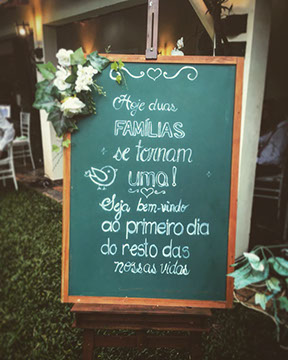 Hoje duas
FAMÍLIAS
se tornam
uma!
Seja bem-vindo
ao primeiro dia
do resto das
nossas vidas